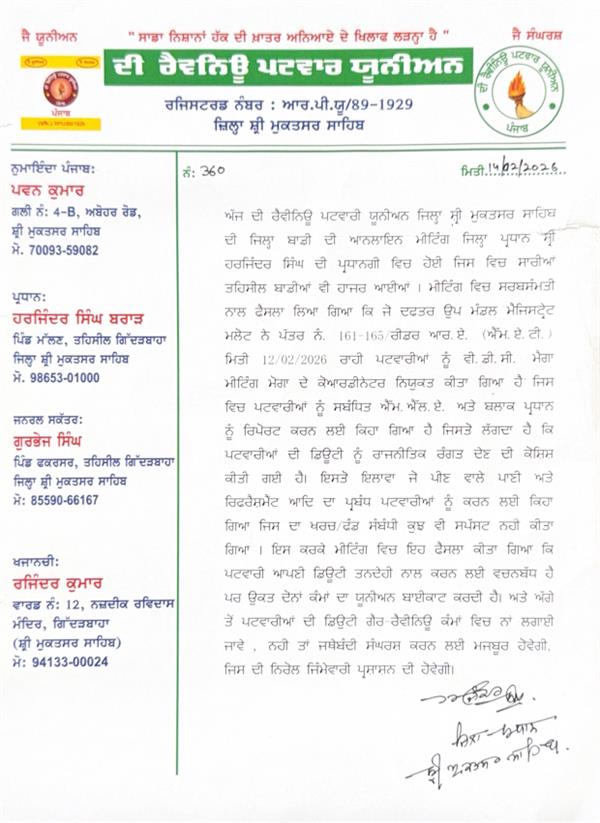 ਜੈ ਯੂਨੀਅਨ
" ਸਾਡਾ ਨਿਸ਼ਾਨਾਂ ਹੱਕ ਦੀ ਖ਼ਾਤਰ ਅਨਿਆਏ ਦੇ ਖਿਲਾਫ ਲੜਨਾ ਹੈ "
ਜੈ ਸੰਘਰਸ਼
ਦੀ ਰੈਵਨਿਊ ਪਟਵਾਰ ਯੂਨੀਅਨ
ਰਜਿਸਟਰਡ ਨੰਬਰ : ਆਰ.ਪੀ.ਯੂ/89-1929
ਜ਼ਿਲ੍ਹਾ ਸ਼੍ਰੀ ਮੁਕਤਸਰ ਸਾਹਿਬ
ਪੰਜਾਬ
ਦੀ ਰੈਵਨਿਊ ਪਟਵਾਰ ਯੂਨੀਅਨ
ਪੰਜਾਬ
ਨੁਮਾਇੰਦਾ ਪੰਜਾਬ:
ਪਵਨ ਕੁਮਾਰ
ਗਲੀ ਨੰ: 4-B, ਅਬੋਹਰ ਰੋਡ,
ਸ਼੍ਰੀ ਮੁਕਤਸਰ ਸਾਹਿਬ
ਮੋ. 70093-59082
ਪ੍ਰਧਾਨ:
ਹਰਜਿੰਦਰ ਸਿੰਘ ਬਰਾੜ
ਪਿੰਡ ਮੱਲਣ, ਤਹਿਸੀਲ ਗਿੱਦੜਬਾਹਾ
ਜਿਲ੍ਹਾ ਸ਼੍ਰੀ ਮੁਕਤਸਰ ਸਾਹਿਬ
ਮੋ. 98653-01000
ਜਨਰਲ ਸਕੱਤਰ:
ਗੁਰਭੇਜ ਸਿੰਘ
ਪਿੰਡ ਫਕਰਸਰ, ਤਹਿਸੀਲ ਗਿੱਦੜਬਾਹਾ
ਜਿਲ੍ਹਾ ਸ਼੍ਰੀ ਮੁਕਤਸਰ ਸਾਹਿਬ
ਮੋ: 85590-66167
ਖਜਾਨਚੀ:
ਰਜਿੰਦਰ ਕੁਮਾਰ
ਵਾਰਡ ਨੰ: 12, ਨਜ਼ਦੀਕ ਰਵਿਦਾਸ
ਮੰਦਿਰ, ਗਿੱਦੜਬਾਹਾ
(ਸ਼੍ਰੀ ਮੁਕਤਸਰ ਸਾਹਿਬ)
ਮੋ: 94133-00024
ਨੰ: 360
ਮਿਤੀ.14/02/2026
ਅੱਜ ਦੀ ਰੈਵੀਨਿਊ ਪਟਵਾਰੀ ਯੂਨੀਅਨ ਜਿਲਾ ਸ੍ਰੀ ਮੁਕਤਸਰ ਸਾਹਿਬ
ਦੀ ਜਿਲਾ ਬਾਡੀ ਦੀ ਆਨਲਾਇਨ ਮੀਟਿੰਗ ਜਿਲਾ ਪ੍ਰਧਾਨ ਸ੍ਰੀ
ਹਰਜਿੰਦਰ ਸਿੰਘ ਦੀ ਪ੍ਰਧਾਨਗੀ ਵਿਚ ਹੋਈ ਜਿਸ ਵਿਚ ਸਾਰੀਆਂ
ਤਹਿਸੀਲ ਬਾਡੀਆਂ ਵੀ ਹਾਜਰ ਆਈਆਂ । ਮੀਟਿੰਗ ਵਿਚ ਸਰਬਸੰਮਤੀ
ਨਾਲ ਫੈਸਲਾ ਲਿਆ ਗਿਆ ਕਿ ਜੋ ਦਫਤਰ ਉਪ ਮੰਡਲ ਮੈਜਿਸਟ੍ਰੇਟ
ਮਲੋਟ ਨੇ ਪੱਤਰ ਨੰ. 161-165/ਰੀਡਰ ਆਰ.ਏ. (ਐੱਮ.ਏ.ਟੀ.)
ਮਿਤੀ 12/02/2026 ਰਾਹੀ ਪਟਵਾਰੀਆਂ ਨੂੰ ਵੀ.ਡੀ.ਸੀ. ਮੇਗਾ
ਮੀਟਿੰਗ ਮੋਗਾ ਦੇ ਕੋਆਰਡੀਨੇਟਰ ਨਿਯੁਕਤ ਕੀਤਾ ਗਿਆ ਹੈ ਜਿਸ
ਵਿਚ ਪਟਵਾਰੀਆਂ ਨੂੰ ਸਬੰਧਿਤ ਐੱਮ.ਐੱਲ.ਏ. ਅਤੇ ਬਲਾਕ ਪ੍ਰਧਾਨ
ਨੂੰ ਰਿਪੋਰਟ ਕਰਨ ਲਈ ਕਿਹਾ ਗਿਆ ਹੈ ਜਿਸਤੋਂ ਲੱਗਦਾ ਹੈ ਕਿ
ਪਟਵਾਰੀਆਂ ਦੀ ਡਿਊਟੀ ਨੂੰ ਰਾਜਨੀਤਿਕ ਰੰਗਤ ਦੇਣ ਦੀ ਕੋਸ਼ਿਸ਼
ਕੀਤੀ ਗਈ ਹੈ। ਇਸਤੋਂ ਇਲਾਵਾ ਜੋ ਪੀਣ ਵਾਲੇ ਪਾਣੀ ਅਤੇ
ਰਿਫਰੈਸ਼ਮੈਂਟ ਆਦਿ ਦਾ ਪ੍ਰਬੰਧ ਪਟਵਾਰੀਆਂ ਨੂੰ ਕਰਨ ਲਈ ਕਿਹਾ
ਗਿਆ ਜਿਸ ਦਾ ਖਰਚ/ਫੰਡ ਸੰਬੰਧੀ ਕੁਝ ਵੀ ਸਪੱਸਟ ਨਹੀ ਕੀਤਾ
ਗਿਆ । ਇਸ ਕਰਕੇ ਮੀਟਿੰਗ ਵਿਚ ਇਹ ਫੈਸਲਾ ਕੀਤਾ ਗਿਆ ਕਿ
ਪਟਵਾਰੀ ਆਪਣੀ ਡਿਊਟੀ ਤਨਦੇਹੀ ਨਾਲ ਕਰਨ ਲਈ ਵਚਨਬੱਧ ਹੈ
ਪਰ ਉਕਤ ਦੋਨਾਂ ਕੰਮਾਂ ਦਾ ਯੂਨੀਅਨ ਬਾਈਕਾਟ ਕਰਦੀ ਹੈ। ਅਤੇ ਅੱਗੇ
ਤੋਂ ਪਟਵਾਰੀਆਂ ਦੀ ਡਿਊਟੀ ਗੈਰ-ਰੈਵੀਨਿਊ ਕੰਮਾਂ ਵਿਚ ਨਾਂ ਲਗਾਈ
ਜਾਵੇ , ਨਹੀ ਤਾਂ ਜਥੇਬੰਦੀ ਸੰਘਰਸ਼ ਕਰਨ ਲਈ ਮਜਬੂਰ ਹੋਵੇਗੀ,
ਜਿਸ ਦੀ ਨਿਰੋਲ ਜਿੰਮੇਵਾਰੀ ਪ੍ਰਸ਼ਾਸਨ ਦੀ ਹੋਵੇਗੀ।
ਜਿਲਾ ਪ੍ਰਧਾਨ
ਸ੍ਰੀ ਮੁਕਤਸਰ ਸਾਹਿਬ.